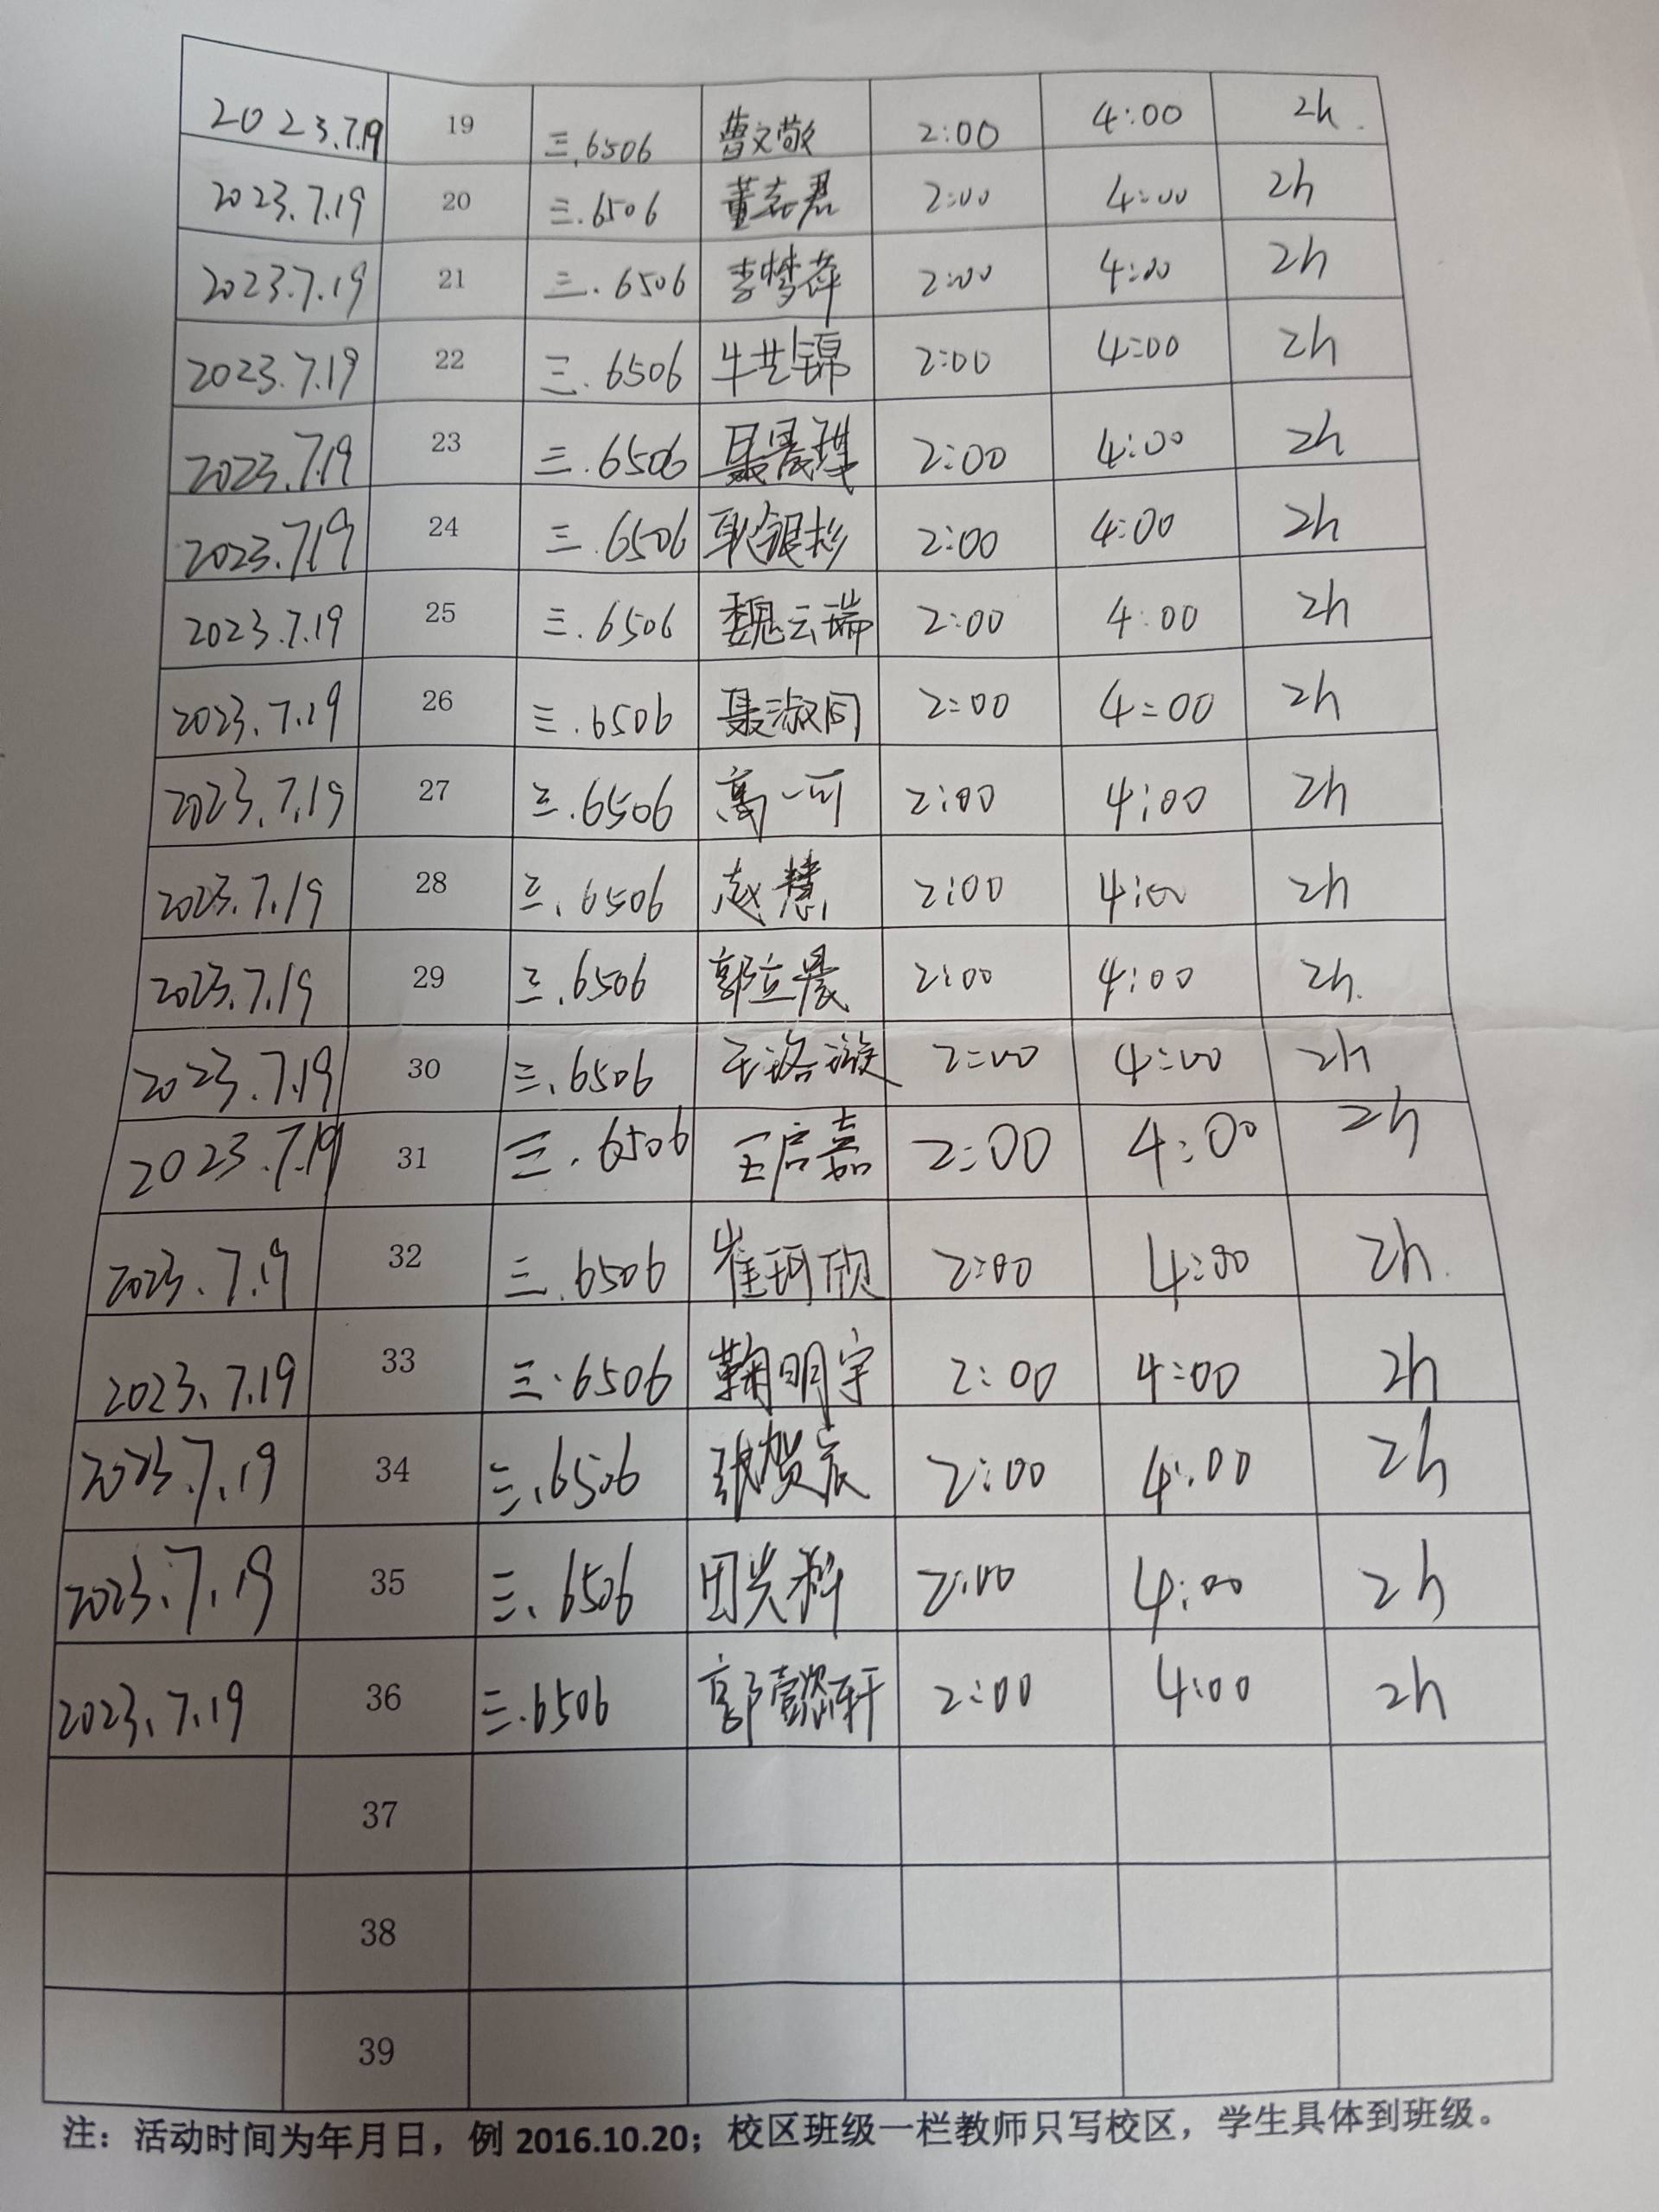 2023.7.19 19 三.6506 曹文敬 2:00 4:00 2h.
2023.7.19 20 三.6506 2:00 4:00 2h
2023.7.19 21 三.6506 李梦萍 2:00 4:00 2h
2023.7.19 22 三.6506 牛艺锦 2:00 4:00 2h
2023.7.19 23 三.6506 2:00 4:00 2h
2023.7.19 24 三.6506 耿银杉 2:00 4:00 2h
2023.7.19 25 三.6506 魏云瑞 2:00 4:00 2h
2023.7.19 26 三.6506 聂淑同 2:00 4:00 2h
2023.7.19 27 三.6506 高一可 2:00 4:00 2h
2023.7.19 28 三、6506 赵慧 2:00 4:00 2h
2023.7.19 29 三.6506 郭立晨 2:00 4:00 2h.
2023.7.19 30 三、6506 2:00 4:00 2h
2023.7.19 31 三.6506 王启嘉 2:00 4:00 2h
2023.7.19 32 三.6506 崔珂欣 2:00 4:00 2h.
2023、7.19 33 三.6506 鞠明宇 2:00 4:00 2h
2023.7.19 34 三、6506 张贺宸 2:00 4:00 2h
2023.7.19 35 三、6506 2:00 4:00 2h
2023、7.19 36 三.6506 郭懿轩 2:00 4:00 2h
37
38
39
注：活动时间为年月日，例 2016.10.20；校区班级一栏教师只写校区，学生具体到班级。